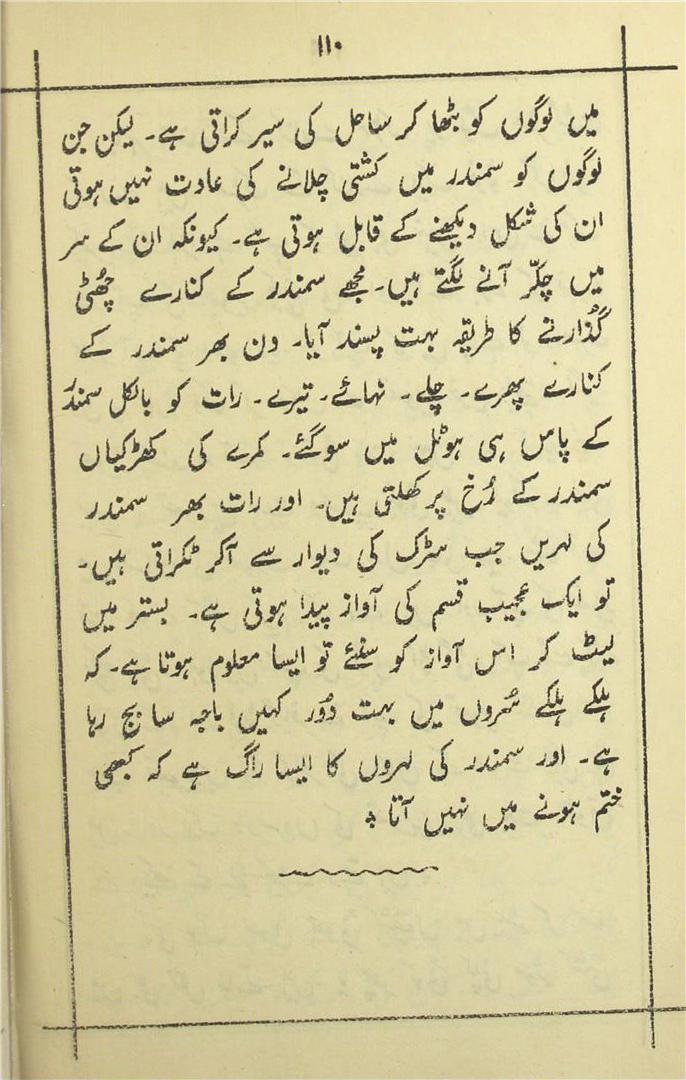 ۱۱۰
میں لوگوں کو بٹھا کر ساحل کی سیر کراتی ہے۔ لیکن جن
لوگوں کو سمندر میں کشتی چلانے کی عادت نہیں ہوتی
ان کی شکل دیکھنے کے قابل ہوتی ہے۔ کیونکہ ان کے سر
میں چکّر آنے لگتے ہیں۔ مجھے سمندر کے کنارے چھُٹی
گُذارنے کا طریقہ بہت پسند آیا۔ دن بھر سمندر کے
کنارے پھرے۔ چلے۔ نہائے۔ تیرے۔ رات کو بالکل سمندر
کے پاس ہی ہوٹل میں سوگئے۔ کمرے کی کھڑکیاں
سمندر کے رُخ پر کھلتی ہیں۔ اور رات بھر سمندر
کی لہریں جب سڑک کی دیوار سے آکر ٹکراتی ہیں۔
تو ایک عجیب قسم کی آواز پیدا ہوتی ہے۔ بستر میں
لیٹ کر اس آواز کو سنئے تو ایسا معلوم ہوتا ہے۔ کہ
ہلکے ہلکے سُروں میں بہت دُور کہیں باجہ سا بج رہا
ہے۔ اور سمندر کی لہروں کا ایسا راگ ہے کہ کبھی
ختم ہونے میں نہیں آتا ؞